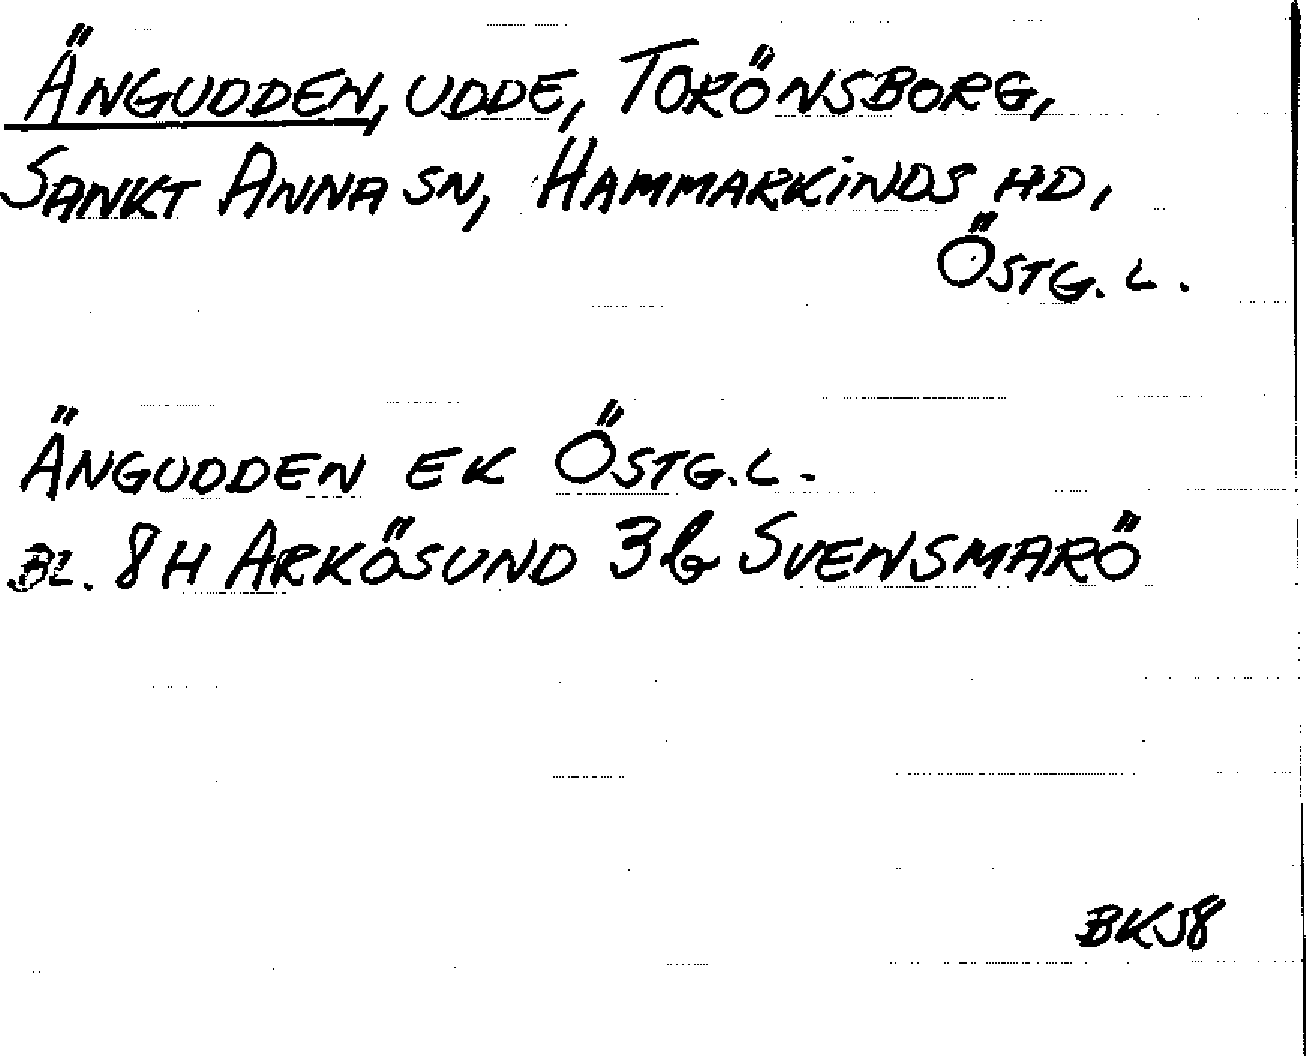 ÄNGUDDEN, UDDE, TORÖNSBORG,
SANKT ANNA SN, HAMMARKINDS HD,
ÖSTG. L.
ÄNGUDDEN EK ÖSTG. L.
BL. 8H ARKÖSUND 3b SVENSMARÖ
BKJ8